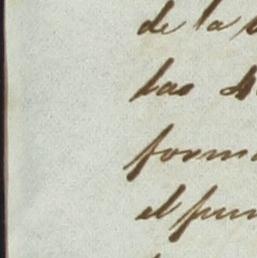 de la
las
form
el pun